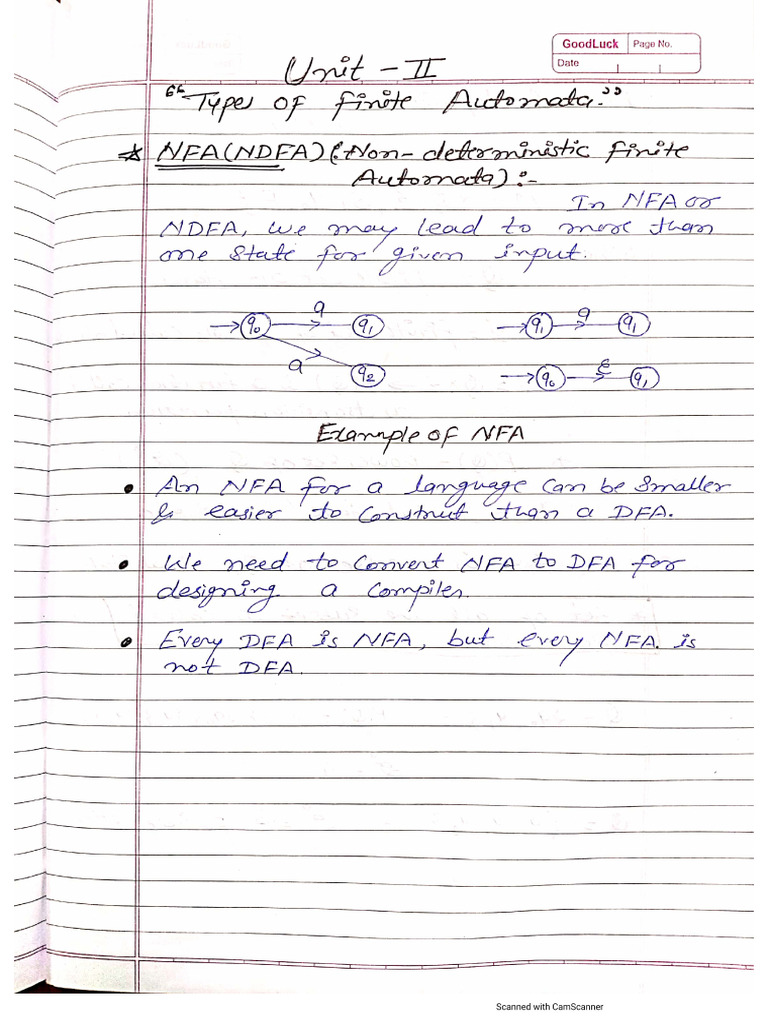 GoodLuck Page No.
Date
Unit - II
"Types of Finite Automata."
* NFA(NDFA)(:Non-deterministic finite
Automata):-
In NFA or
NDFA, we may lead to more than
one state for given input.
a
q0 q1 q1 a q1
a q2 q0 ε q1
Example of NFA
• An NFA for a language can be smaller
& easier to construct than a DFA.
• We need to convert NFA to DFA for
designing a compiler.
• Every DFA is NFA, but every NFA. is
not DFA.
Scanned with CamScanner